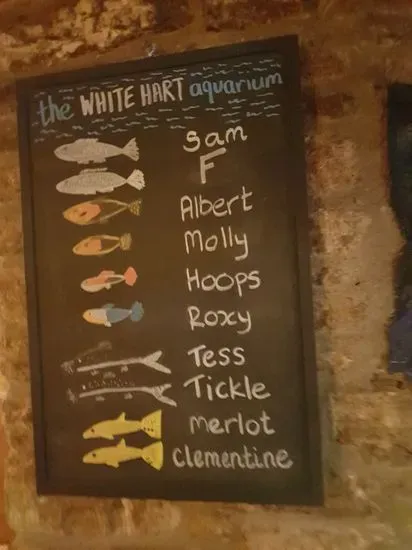 the WHITE HART aquarium
Sam
F
Albert
Molly
Hoops
Roxy
Tess
Tickle
merlot
clementine